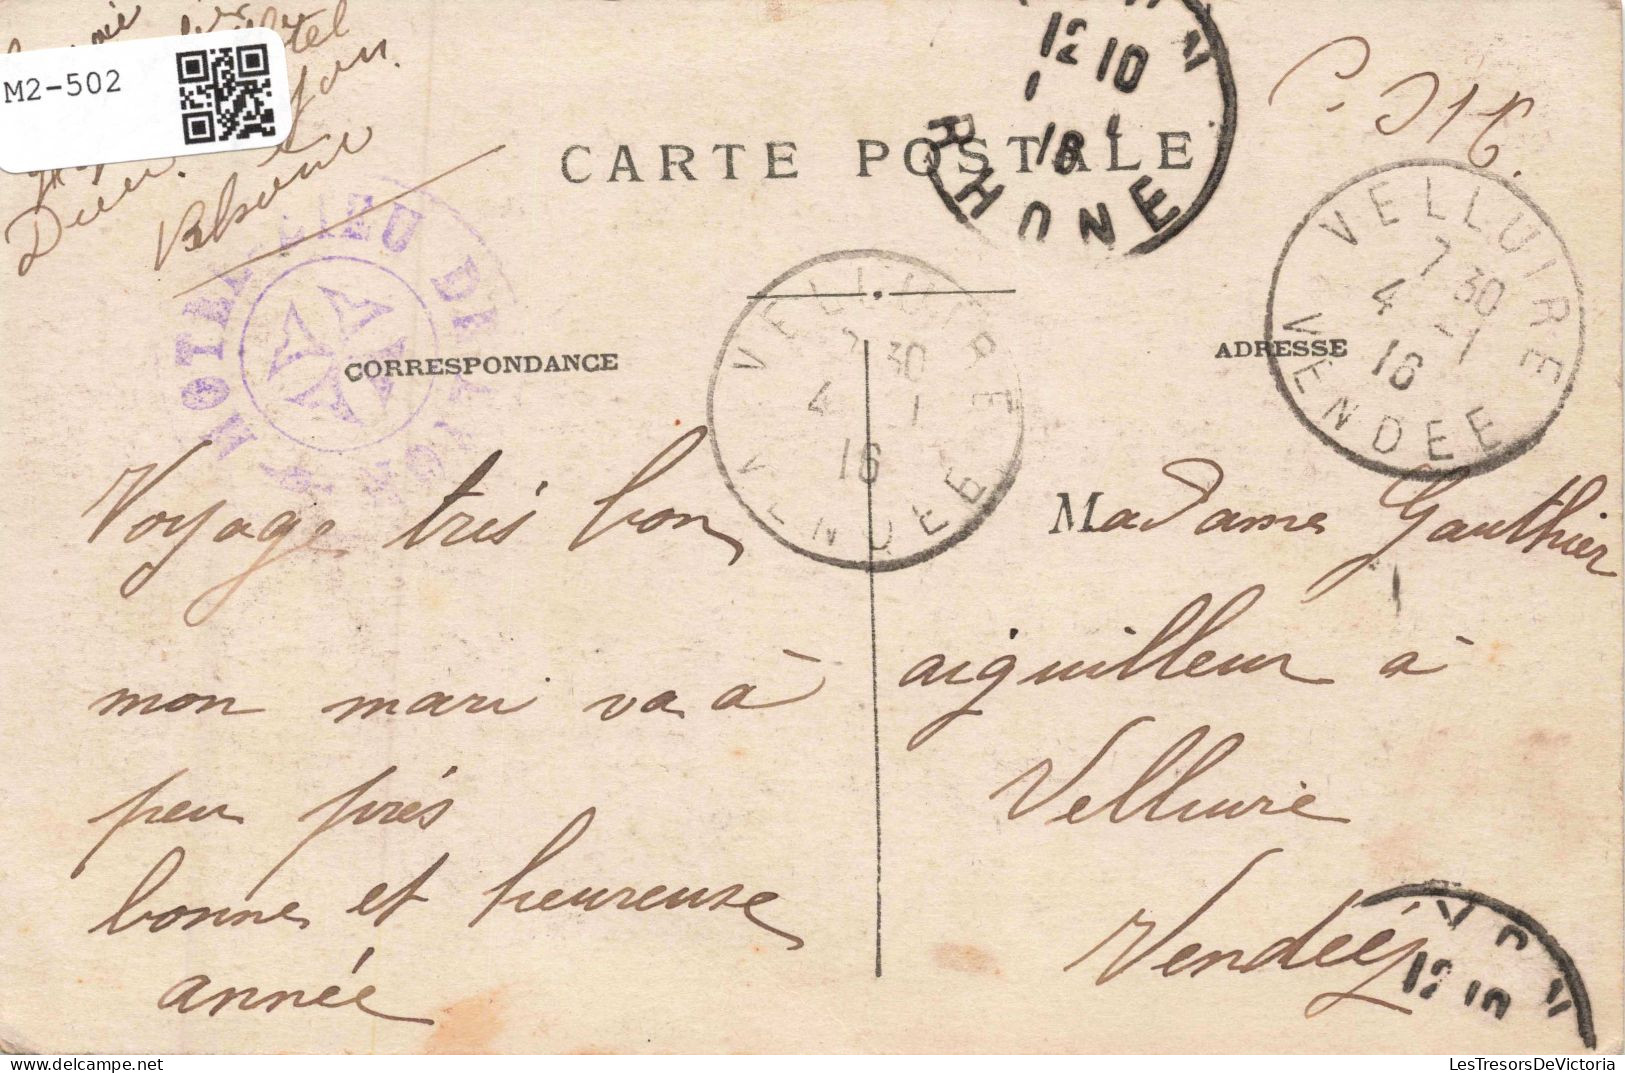 M2-502
Rhône
CARTE POSTALE
12 10
1 1
16
RHONE
VELLUIRE
7 30
4 -1
16
VENDEE
VELLUIRE
7 30
4 1
16
VENDEE
CORRESPONDANCE
ADRESSE
Voyage très bon
mon mari va à
peu près
bonne et heureuse
année
Madame Gauthier
aiguilleur à
Velluire
Vendée
12 10
LesTresorsDeVictoria